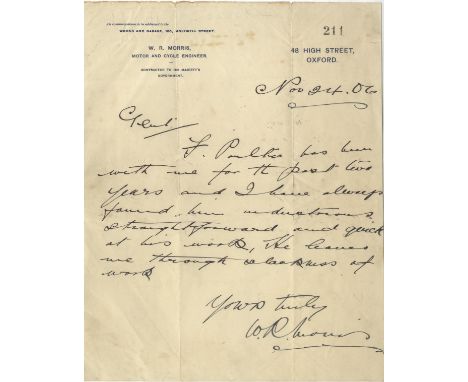 All communications to be addressed to the
WORKS AND GARAGE, 100, HOLYWELL STREET.
W. R. MORRIS,
MOTOR AND CYCLE ENGINEER.
CONTRACTOR TO HIS MAJESTY'S
GOVERNMENT.
211
48 HIGH STREET,
OXFORD.
Nov 24. 06
Gent
F. Poulter has been
with me for the past two
years and I have always
found him industrious
straightforward and quick
at his work, He leaves
me through slackness of
work
Yours truly
W.R. Morris